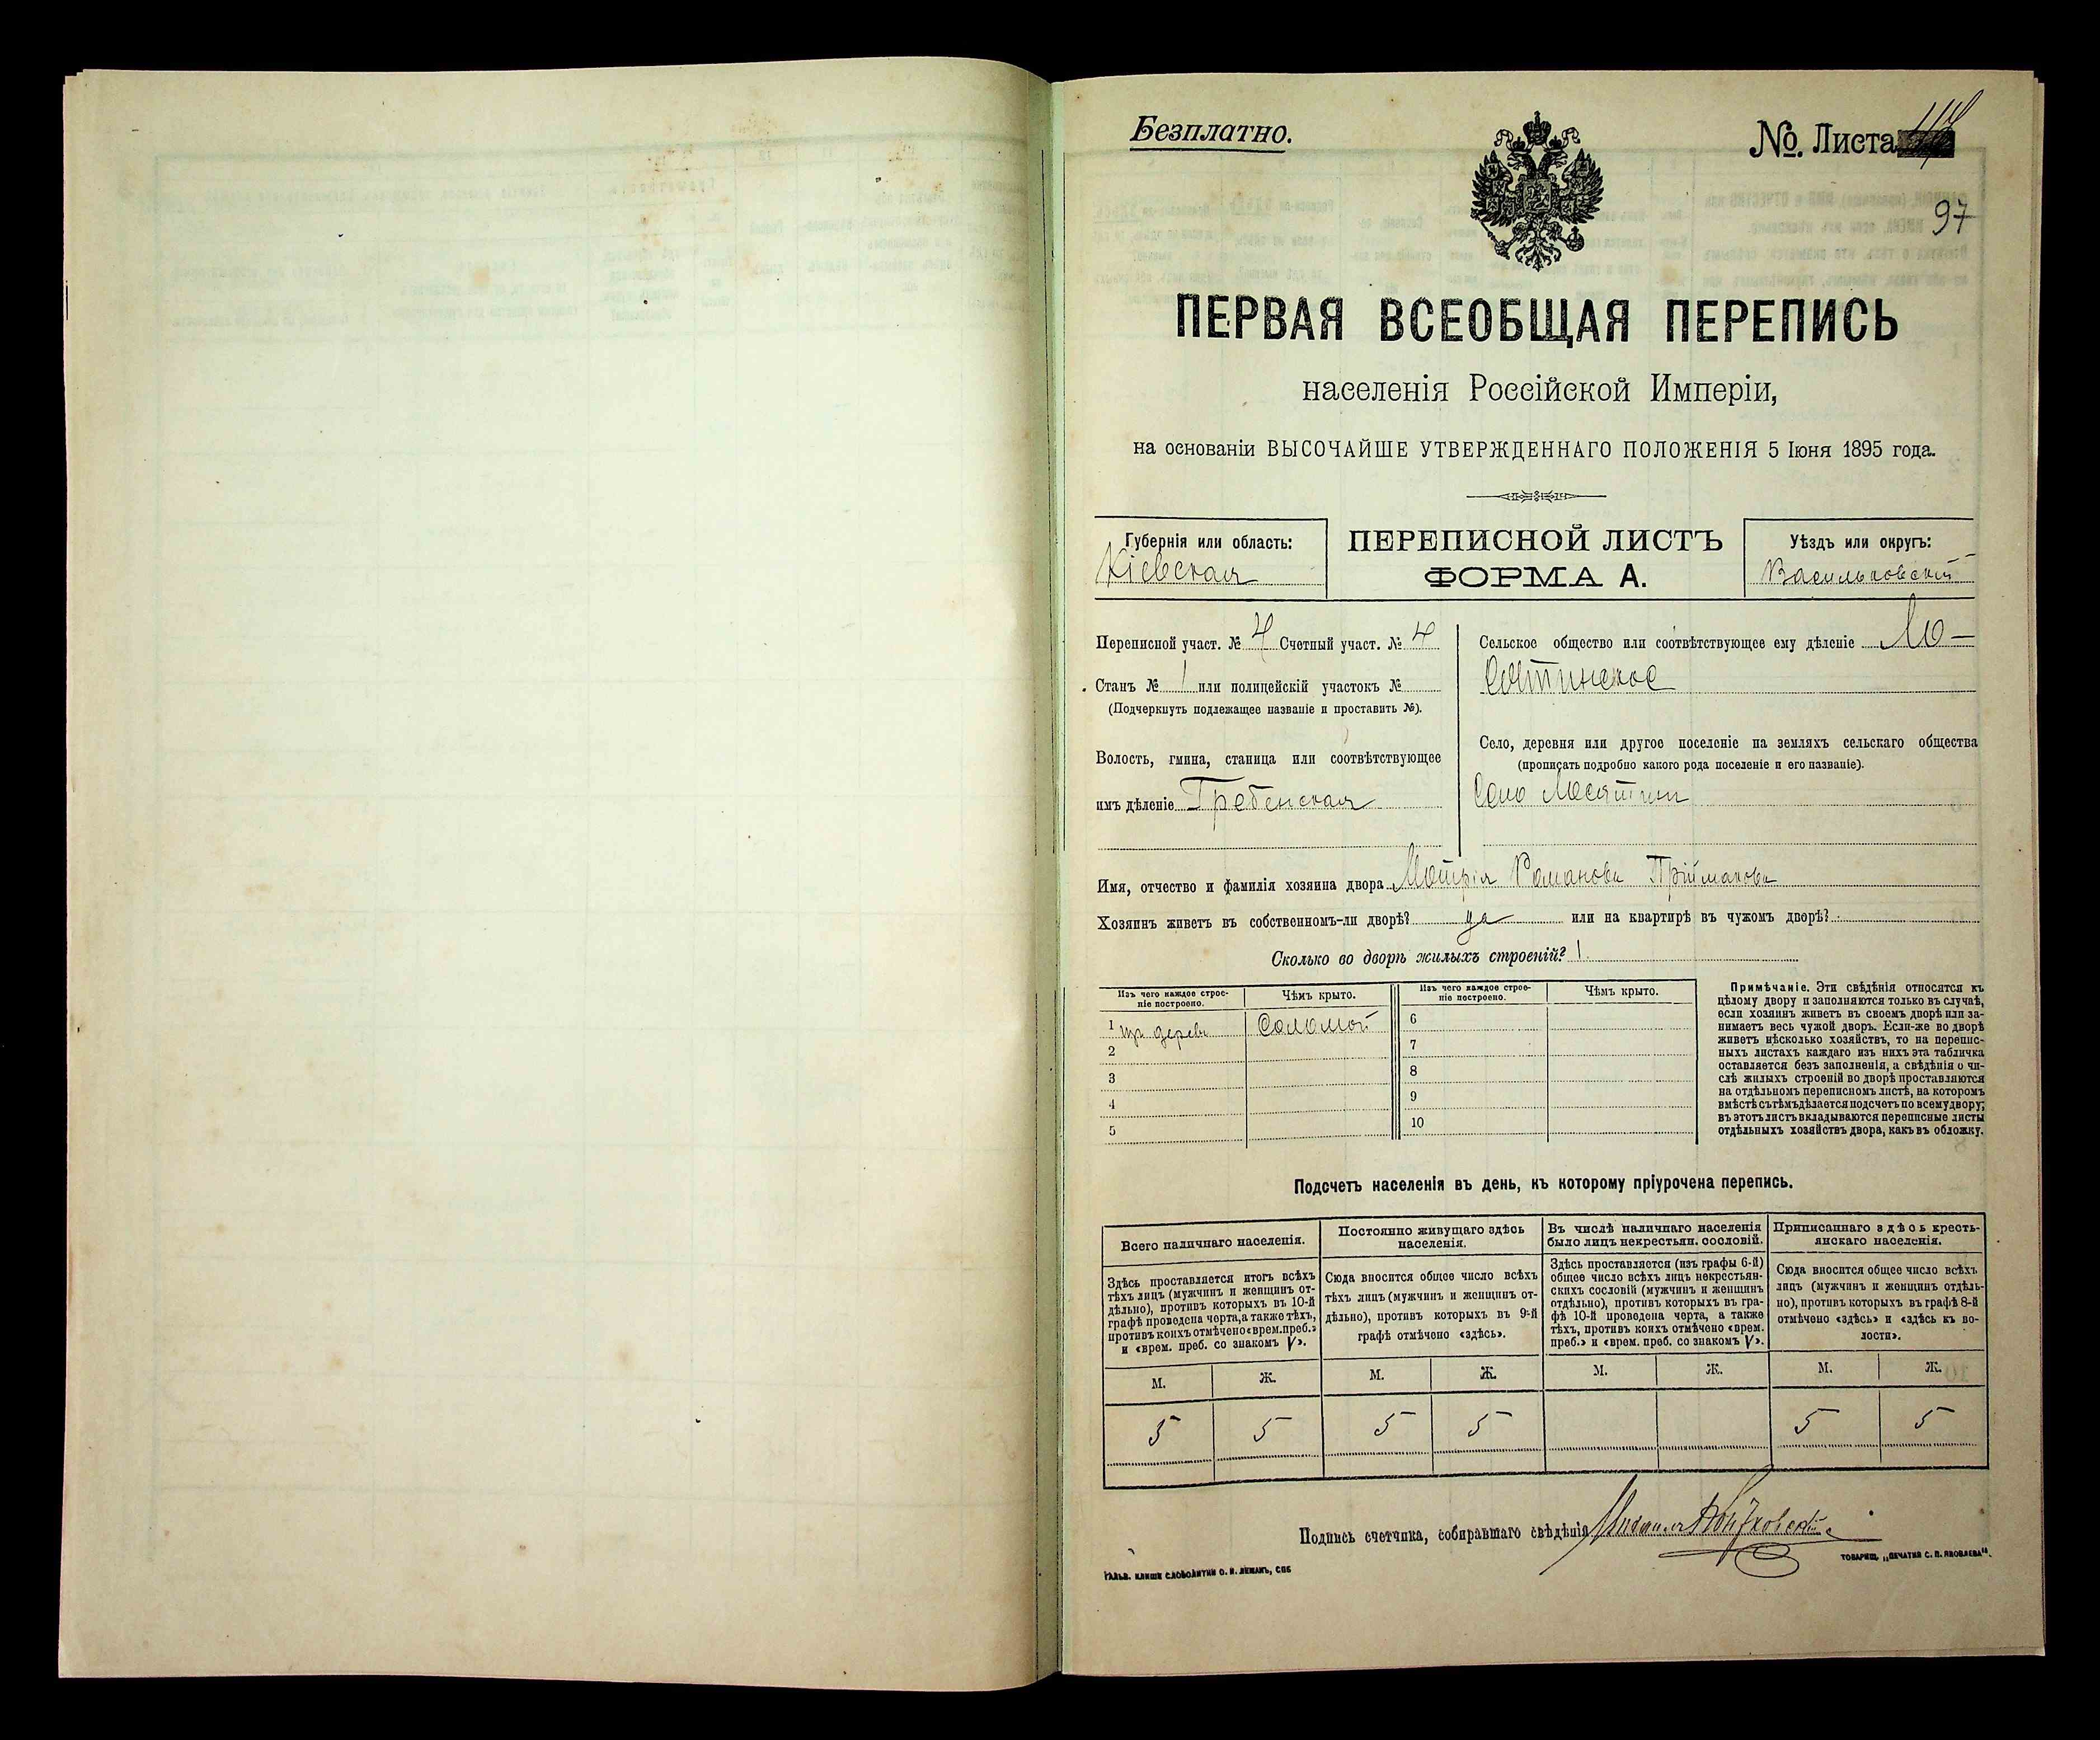 Безплатно.
№. Листа
97
ПЕРВАЯ ВСЕОБЩАЯ ПЕРЕПИСЬ
населенія Россійской Имперіи,
на основаніи ВЫСОЧАЙШЕ УТВЕРЖДЕННАГО ПОЛОЖЕНІЯ 5 Іюня 1895 года.
Губернія или область:
Кіевская
ПЕРЕПИСНОЙ ЛИСТЪ
ФОРМА А.
Уѣздъ или округъ:
Васильковскій
Переписной участ. № 4 Счетный участ. № 4
Станъ № 1 или полицейскій участокъ №
(Подчеркнуть подлежащее названіе и проставить №).
Волость, гмина, станица или соотвѣтствующее
имъ дѣленіе Гребенская
Сельское общество или соотвѣтствующее ему дѣленіе
Село, деревня или другое поселеніе на земляхъ сельскаго общества
(прописать подробно какого рода поселеніе и его названіе).
Село
Имя, отчество и фамилія хозяина двора Мотрія Романова Пріймакова
Хозяинъ живетъ въ собственномъ-ли дворѣ? да или на квартирѣ въ чужомъ дворѣ?
Сколько во дворѣ жилыхъ строеній? 1
Изъ чего каждое строе-
ніе построено.
Чѣмъ крыто.
Изъ чего каждое строе-
ніе построено.
Чѣмъ крыто.
1 изъ дерева Соломой
2
3
4
5
6
7
8
9
10
Примѣчаніе. Эти свѣдѣнія относятся къ
цѣлому двору и заполняются только въ случаѣ,
если хозяинъ живетъ въ своемъ дворѣ или за-
нимаетъ весь чужой дворъ. Если-же во дворѣ
живетъ нѣсколько хозяйствъ, то на перепис-
ныхъ листахъ каждаго изъ нихъ эта табличка
оставляется безъ заполненія, а свѣдѣнія о чи-
слѣ жилыхъ строеній во дворѣ проставляются
на отдѣльномъ переписномъ листѣ, на которомъ
вмѣстѣ съ тѣмъ дѣлается подсчетъ по всему двору;
въ этотъ листъ вкладываются переписные листы
отдѣльныхъ хозяйствъ двора, какъ въ обложку.
Подсчетъ населенія въ день, къ которому пріурочена перепись.
Всего наличнаго населенія.
Здѣсь проставляется итогъ всѣхъ
тѣхъ лицъ (мужчинъ и женщинъ от-
дѣльно), противъ которыхъ въ 10-й
графѣ проведена черта, а также тѣхъ,
противъ коихъ отмѣчено «врем. преб.»
и «врем. преб. со знакомъ V».
Постоянно живущаго здѣсь
населенія.
Сюда вносится общее число всѣхъ
тѣхъ лицъ (мужчинъ и женщинъ от-
дѣльно), противъ которыхъ въ 9-й
графѣ отмѣчено «здѣсь».
Въ числѣ наличнаго населенія
было лицъ некрестьян. сословій.
Здѣсь проставляется (изъ графы 6-й)
общее число всѣхъ лицъ некрестьян-
скихъ сословій (мужчинъ и женщинъ
отдѣльно), противъ которыхъ въ гра-
фѣ 10-й проведена черта, а также
тѣхъ, противъ коихъ отмѣчено «врем.
преб.» и «врем. преб. со знакомъ V».
Приписаннаго здѣсь кресть-
янскаго населенія.
Сюда вносится общее число всѣхъ
лицъ (мужчинъ и женщинъ отдѣль-
но), противъ которыхъ въ графѣ 8-й
отмѣчено «здѣсь» и «здѣсь къ во-
лости».
М. Ж. М. Ж. М. Ж. М. Ж.
5 5 5 5 5 5
Подпись счетчика, собиравшаго свѣдѣнія
ГАЛЬВ. КЛИШЕ СЛОВОЛИТНИ О. И. ЛЕМАНЪ, СПБ
ТОВАРИЩ. „ПЕЧАТНЯ С. П. ЯКОВЛЕВА“.